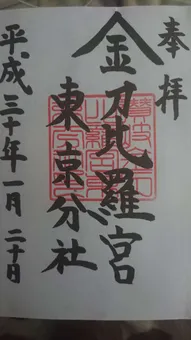 奉拝
金刀比羅宮
東京分社
平成三十年一月二十日